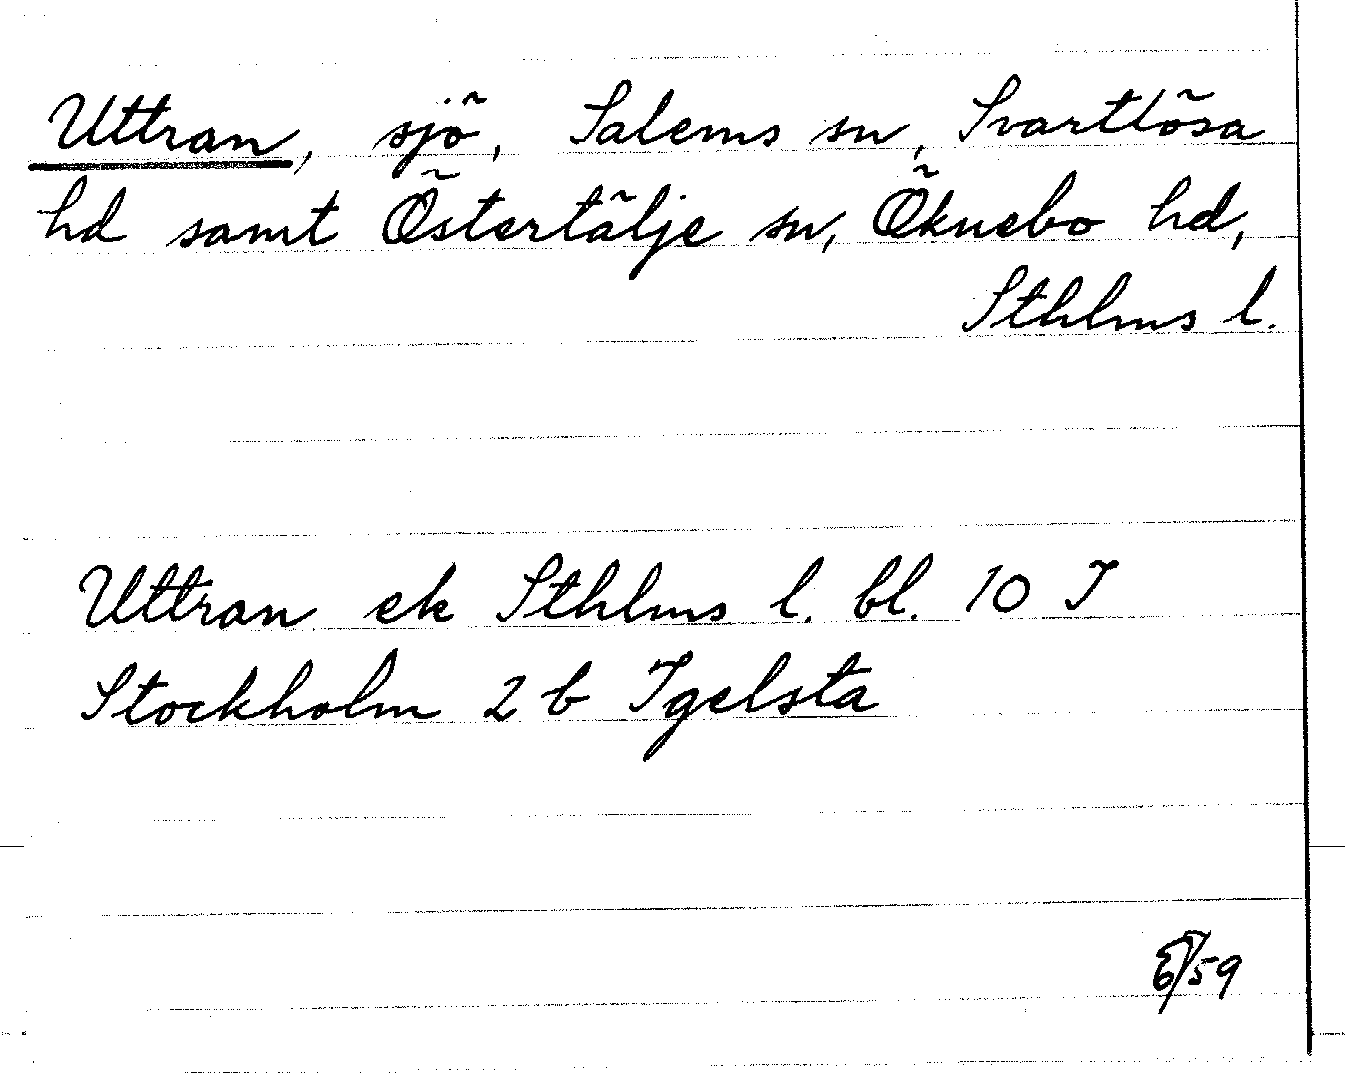 Uttran, sjö, Salems sn, Svartlösa
hd samt Östertälje sn, Öknebo hd,
Sthlms l.
Uttran ek Sthlms l. bl. 10 I
Stockholm 2 b Igelsta
/59